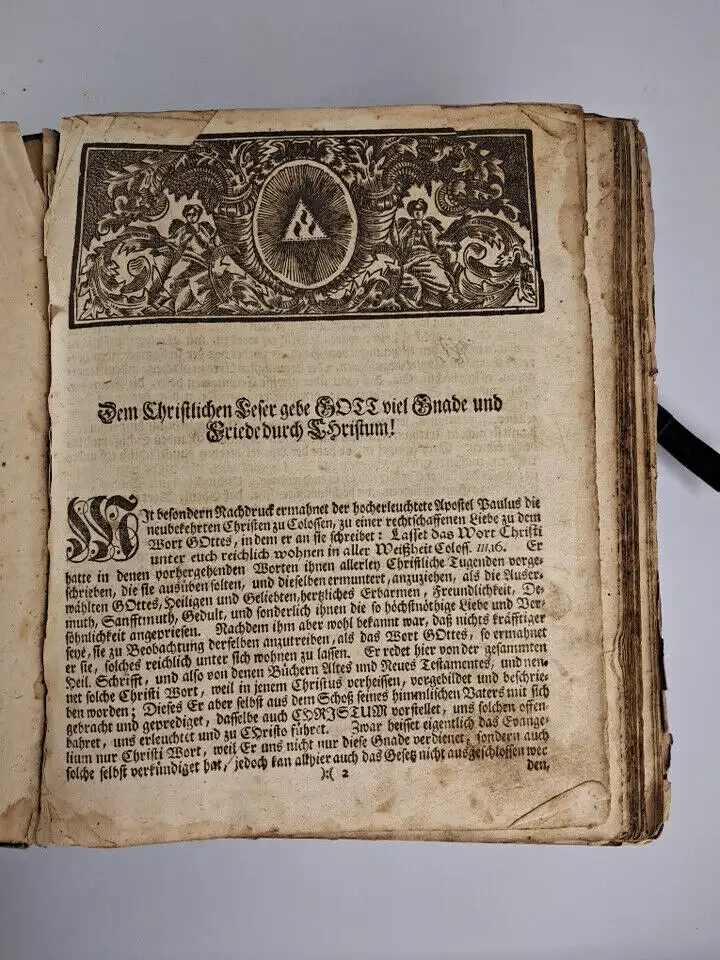 Dem Christlichen Leser gebe GOTT viel Gnade und
Friede durch CHristum!
MIt besondern Nachdruck ermahnet der hocherleuchtete Apostel Paulus die
neubekehrten Christen zu Colossen, zu einer rechtschaffenen Liebe zu dem
Wort GOttes, in dem er an sie schreibet: Lasset das Wort Christi
unter euch reichlich wohnen in aller Weißheit Coloss. III,16. Er
hatte in denen vorhergehenden Worten ihnen allerley Christliche Tugenden vorge-
schrieben, die sie ausüben solten, und dieselben ermuntert, anzuziehen, als die Auser-
wählten GOttes, Heiligen und Geliebten, hertzliches Erbarmen, Freundlichkeit, De-
muth, Sanfftmuth, Gedult, und sonderlich ihnen die so höchstnöthige Liebe und Ver-
söhnlichkeit angepriesen. Nachdem ihm aber wohl bekannt war, daß nichts kräfftiger
seye, sie zu Beobachtung derselben anzutreiben, als das Wort GOttes, so ermahnet
er sie, solches reichlich unter sich wohnen zu lassen. Er redet hier von der gesammten
Heil. Schrifft, und also von denen Büchern Altes und Neues Testamentes, und nen-
net solche Christi Wort, weil in jenem Christus verheissen, vorgebildet und beschrie-
ben worden; Dieses Er aber selbst aus dem Schoß seines himmlischen Vaters mit sich
gebracht und geprediget, dasselbe auch CHRISTUM vorstellet, uns solchen offen-
bahret, uns erleuchtet und zu CHristo führet. Zwar heisset eigentlich das Evange-
lium nur Christi Wort, weil Er uns nicht nur diese Gnade verdienet, sondern auch
solche selbst verkündiget hat, jedoch kan allhier auch das Gesetz nicht ausgeschlossen wer
):( 2 den,